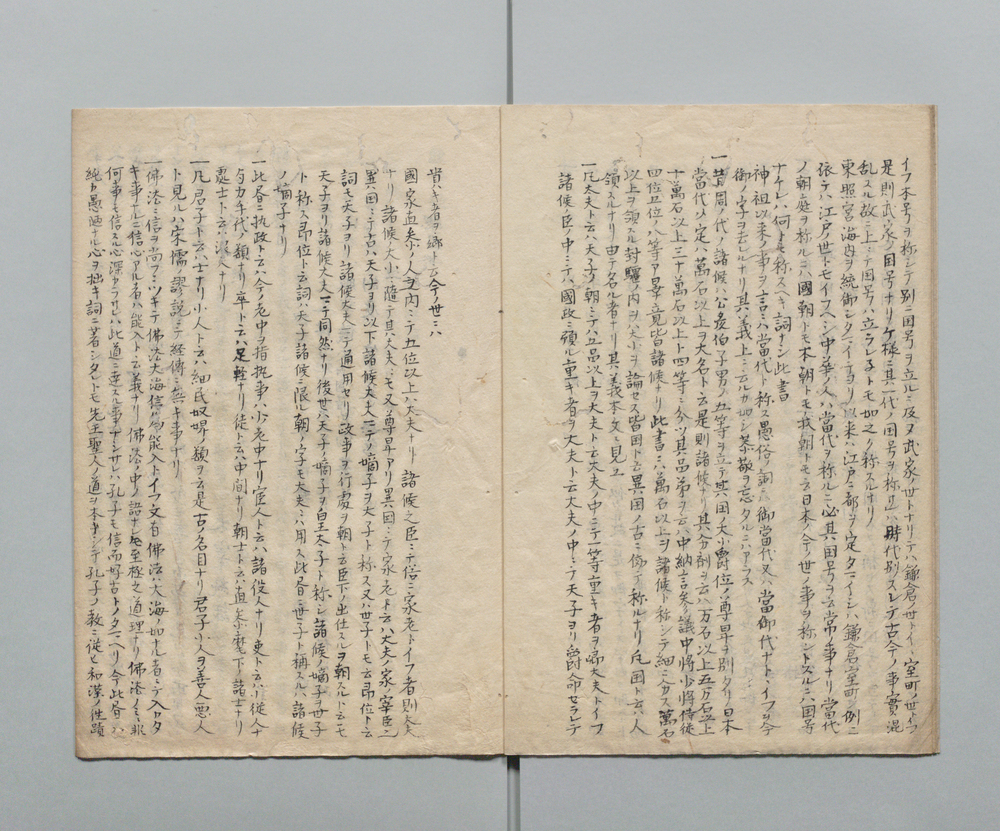 イフ本号ヲ称シテ別ニ国号ヲ立ルニ及ヌ武家ノ世トナリテハ鎌倉ノ世トイヒ室町ノ世トイフ
是則武家ノ国号ナリケ様ニ其一代ノ国号ヲ称セハ時代別スレテ古今ノ事實混
乱スル故ニ上ニテ国号ハ立ラレ子トモ如之ク称スルナリ
東照宮海内ヲ統御シタマイテヨリ以来ハ江戸ニ都ヲ定タマイシハ鎌倉室町ノ例ニ
依テハ江戸世トモイフヘシ中華ノ人ハ當代ヲ称ルニ必其国号ヲ云常ノ事ナリ當代
ノ朝廷ヲ称ルニハ國朝トモ本朝トモ我朝トモ云日本ノ今ノ世ノ事ヲ称ントスルニハ国号
ナケレハ何トモ称スヘキ詞ナシ此書ニ
神祖以来ノ事ヲ言ニハ當代ト称ス愚俗ノ詞ニハ御當代又ハ當御代ナトヽイフヲ今
御ノ字ヲ去ルナリ其ノ義上ニ云ルカ如シ恭敬ヲ忘タルニハアラス
一昔周ノ代ノ諸侯ハ公侯伯子男ノ五等ヲ立テ其国ノ大小爵位ノ尊卑ヲ別タリ日本
當代ノ定ハ萬石以上ヲ大名ト云是則諸侯ナリ其分剤ヲ云ハ万石以上五万石以上
十萬石以上二十萬石以上ト四等ニ分ツ其品第ヲ云ハ中納言参議中将少将侍従
四位五位八等アリ畢竟皆諸侯ナリ此書ニハ萬石以上ヲ諸侯ト称シテ細ニ分ス萬石
以上ヲ領スル封疆ノ内ヲハ大小ヲ論セス皆国ト云異国ノ古ニ倣テ称ルナリ凡国ト云ハ人
領スルナリ由テ名ル者ナリ其ノ義本文ニ見ユ
一凡大夫ト云ハ天子ノ朝ニテハ五品以上ヲ大夫ト云大夫ノ中ニテ一等重キ者ヲ卿大夫トイフ
諸侯ノ臣ノ中ニテハ國政ニ預ル重キ者ヲ大夫ト云大夫ノ中ニテ天子ヨリ爵命セラレテ
貴ハキ者ヲ卿ト云今ノ世ニハ
國家直参ノ人ヲ内ニテ五位以上ハ大夫ナリ諸侯之臣ニテ俗ニ家老トイフ者則大夫
ナリ諸侯ノ大小ニ随テ其大夫ニモ又尊卑アリ異国ニテ家老ト云ハ大夫ノ家ノ宰臣ニ
異国ニテ古ハ天子ヨリ以下諸侯大夫ニテノ嫡子ヲ太子ト称ス又ハ世子トモ云即位ト云
詞モ天子ヨリ諸侯大夫ニテ通用セリ政事ヲ行處ヲ朝ト云臣下ノ出仕スルヲ朝スルト云モ
天子ヨリ諸侯大夫ニテ同然ナリ後世ハ天子ノ嫡子ヲ皇太子ト称シ諸侯ノ嫡子ヲ世子
ト称ス即位ト云詞ハ天子諸侯ニ限ル朝ノ字モ大夫ニハ用ス此書ニ世子ト稱スルハ諸侯
ノ嫡子ナリ
一此書ニ執政ト云ハ今ノ老中ヲ指執事ハ少老中ナリ官人ト云ハ諸役人ナリ吏ト云ハ従人ナ
与力手代ノ類ナリ卒ト云ハ足軽ナリ徒ト云ハ中間ナリ朝士ト云ハ直参麾下ノ諸士ナリ
處士ト云ハ浪人ナリ
一凡君子ト云ハ士ナリ小人ト云ハ細民奴婢ノ類ヲ云是古ノ名目ナリ君子小人ヲ善人悪人
ト見ルハ宋儒ノ謬説ニテ経傳ニ無キ事ナリ
一佛法ニ信ヲ尚フニツキテ佛法大海信為能入トイフ文有佛法ハ大海ノ如ナル者ニテ入カタ
キ事ナルニ信心アル者ハ能入ト云義ナリ佛法ノ中ノ語ナレ𪜈至極之道理ナリ佛法ノミニ非
何事ニモ信スル心深カラサレハ此道ニ達スル事ナシサレハ孔子モ信而好古トノタマヘリ今此書ハ
純カ愚陋ナル心ヲ拙キ詞ニ著シタレトモ先王聖人ノ道ヲ本トシテ孔子ノ教ニ従ヒ和漢ノ往蹟